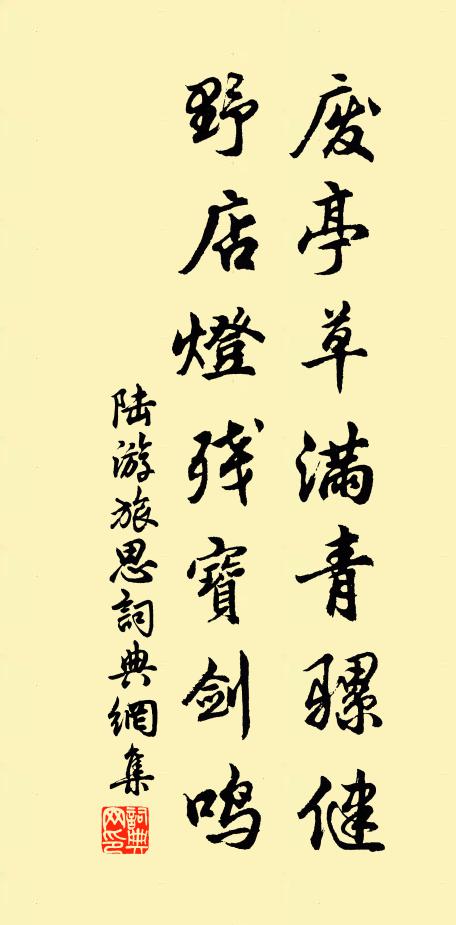 废亭草滿青騾健
野店燈残寶劍鸣
陆游旅思詞典網集
詞典网印